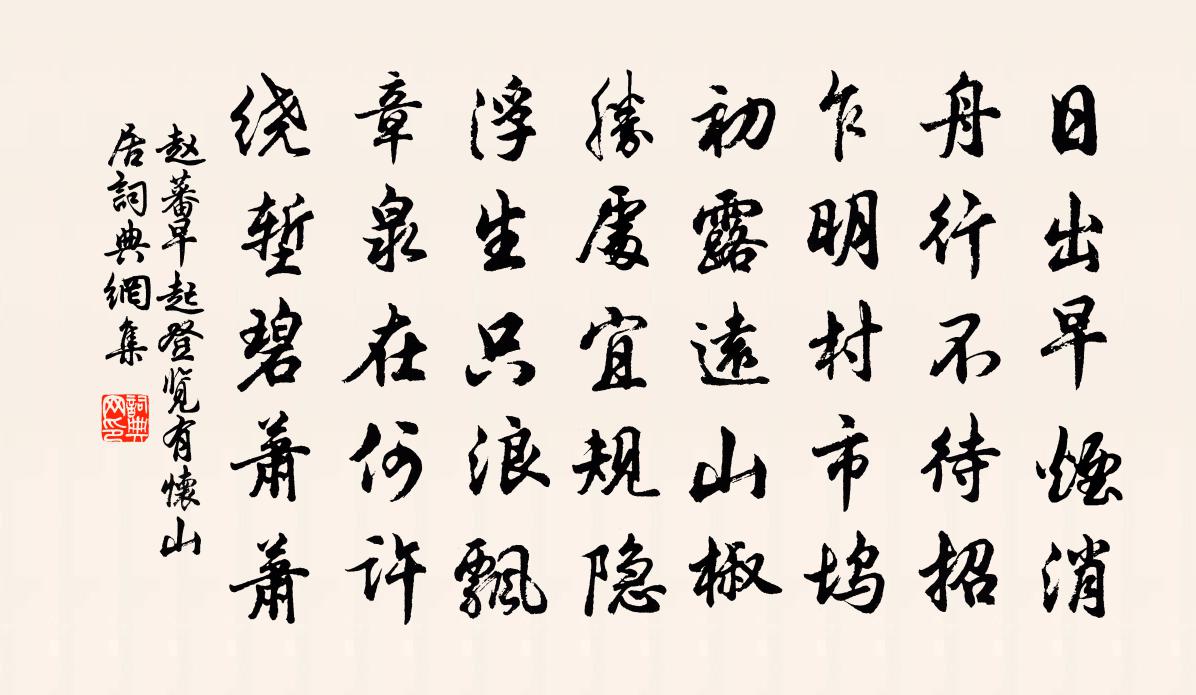 日出早煙消
舟行不待招
乍明村市坞
初露遠山椒
勝處宜規隐
浮生只浪飄
章泉在何许
绕堑碧萧萧
赵蕃早起登览有懷山
居詞典網集
詞典
网印